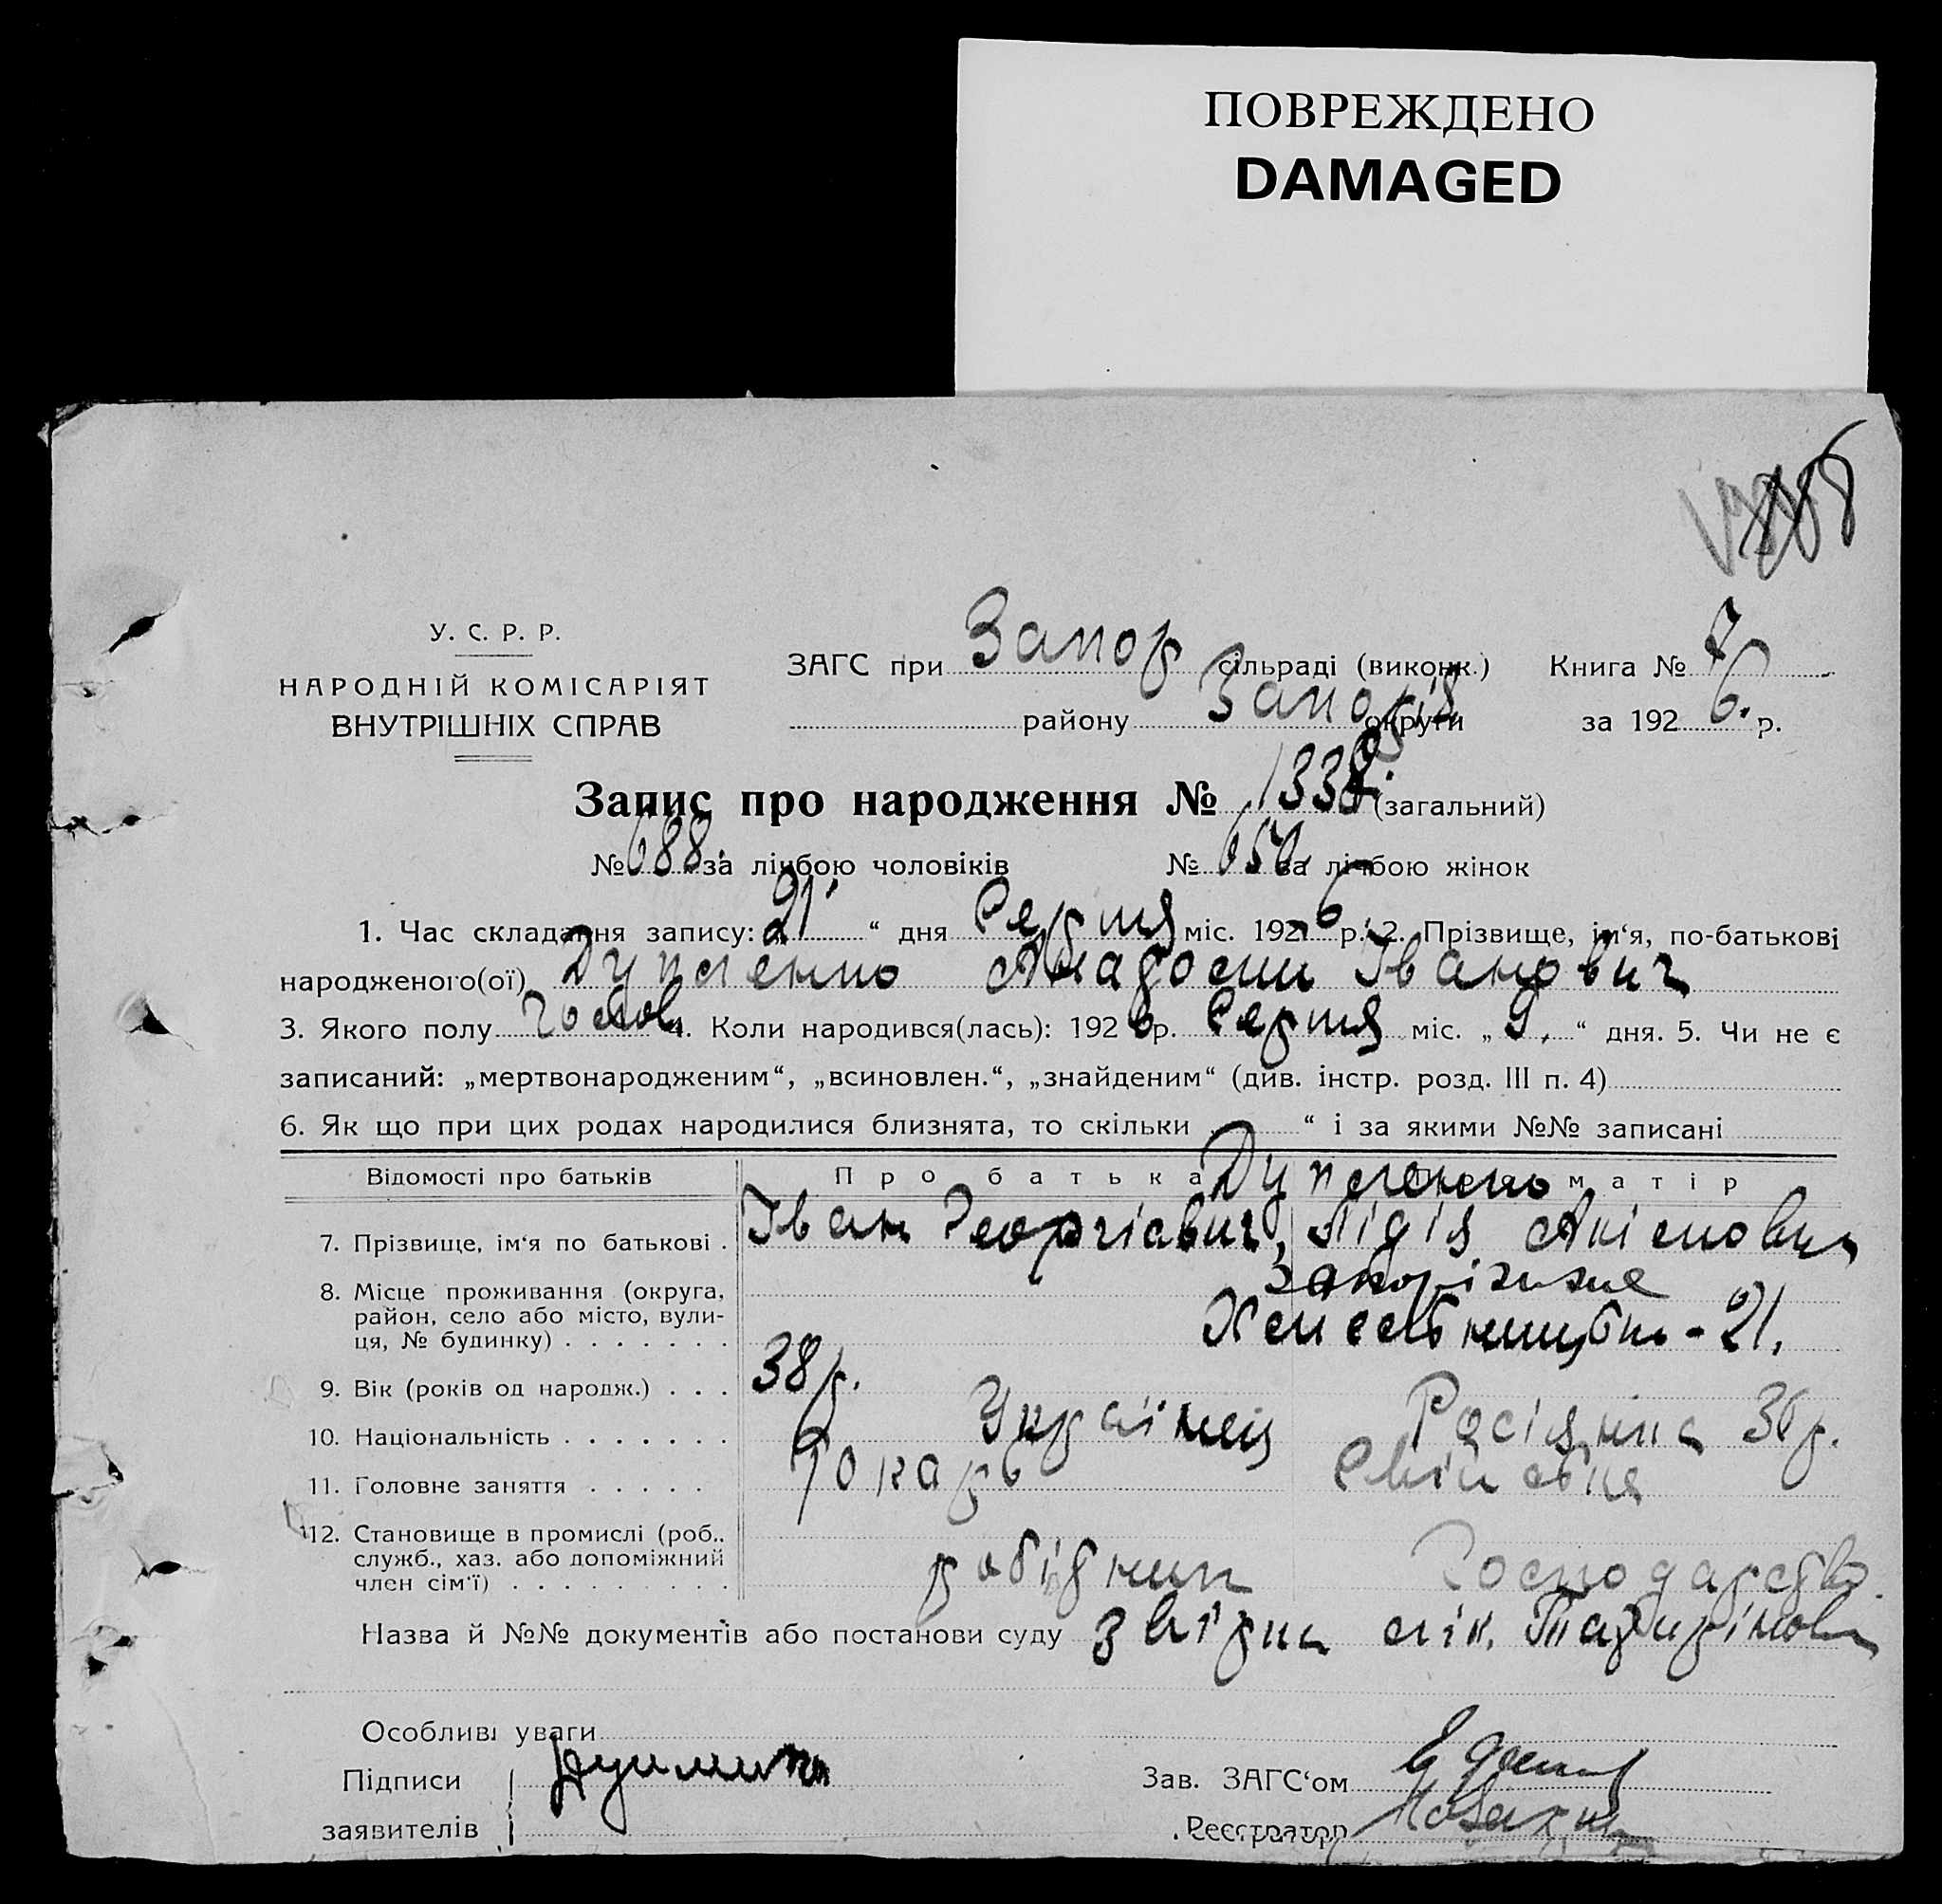 ПОВРЕЖДЕНО
DAMAGED
У. С. Р. Р.
НАРОДНІЙ КОМІСАРІЯТ
ВНУТРІШНІХ СПРАВ
ЗАГС при Запор сільраді (виконк.) Книга № 7
району Запоріз округи за 192 6. р.
Запис про народження № 1338. (загальний)
№ 688. за лічбою чоловіків № 650 за лічбою жінок
1. Час складання запису: 21 “ дня Серпня міс. 192 6 р. 2. Прізвище, ім‘я, по-батькові
народженого(ої) Іванович
3. Якого полу Чолов 4. Коли народився(лась): 192 6 р. Серпня міс. „ 9. “ дня. 5. Чи не є
записаний: „мертвонародженим“, „всиновлен.“, „знайденим“ (див. інстр. розд. III п. 4)
6. Як що при цих родах народилися близнята, то скільки “ і за якими №№ записані
Відомості про батьків Про батька матір
7. Прізвище, ім‘я по батькові . Іван Георгієвич, Лідія Акімовна
8. Місце проживання (округа, Запоріжжя
район, село або місто, вули-
ця, № будинку) . . . . . . . - 21.
9. Вік (років од народж.) . . . 38 р.
10. Національність . . . . . . . Українец Росіянка 36 р.
11. Головне заняття . . . . . Токарь
12. Становище в промислі (роб.,
служб., хаз. або допоміжний
член сім‘ї) . . . . . . . . . робідник Господарство.
Назва й №№ документів або постанови суду з лік.
Особливі уваги
Підписи
Зав. ЗАГС‘ом
заявителів
Реєстратор